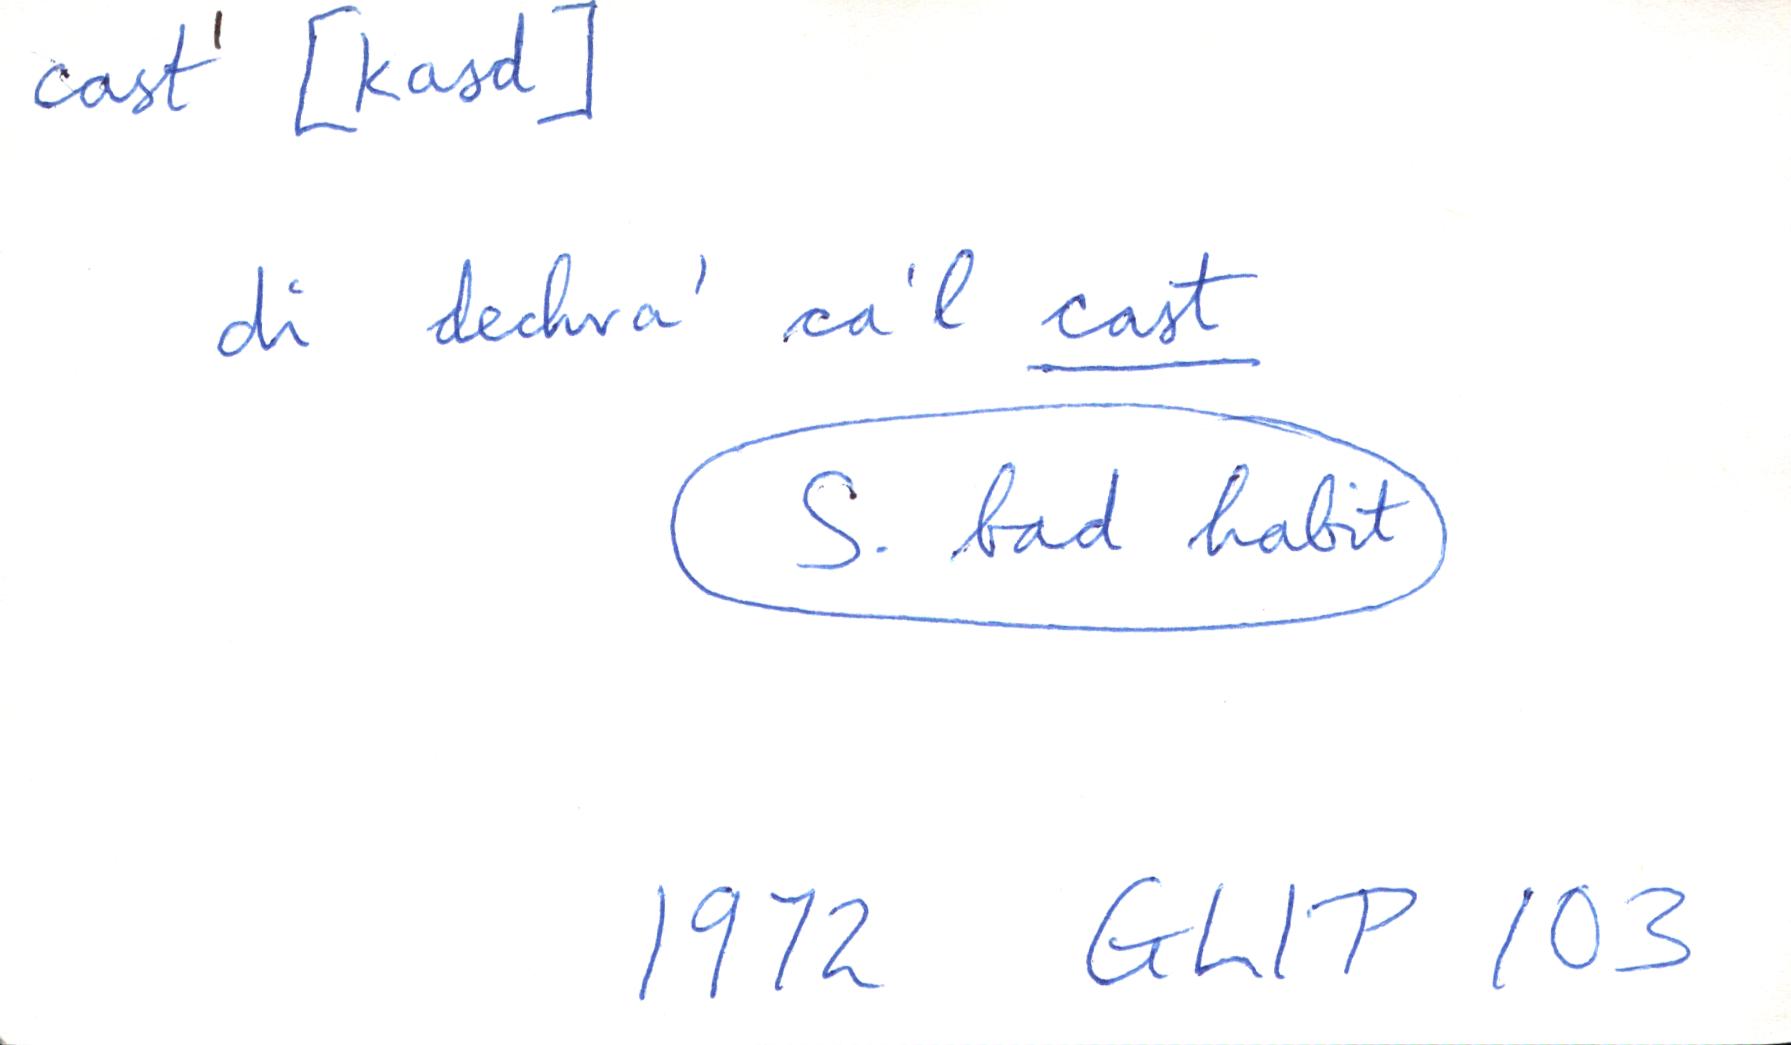 cast' [kasd]
di dechra' ca'l cast
S. bad habit
1972 GLIP 103